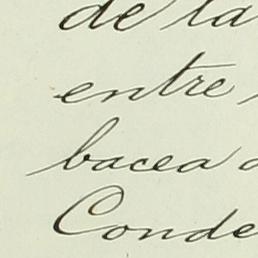 de la
entre
bacea
Conde